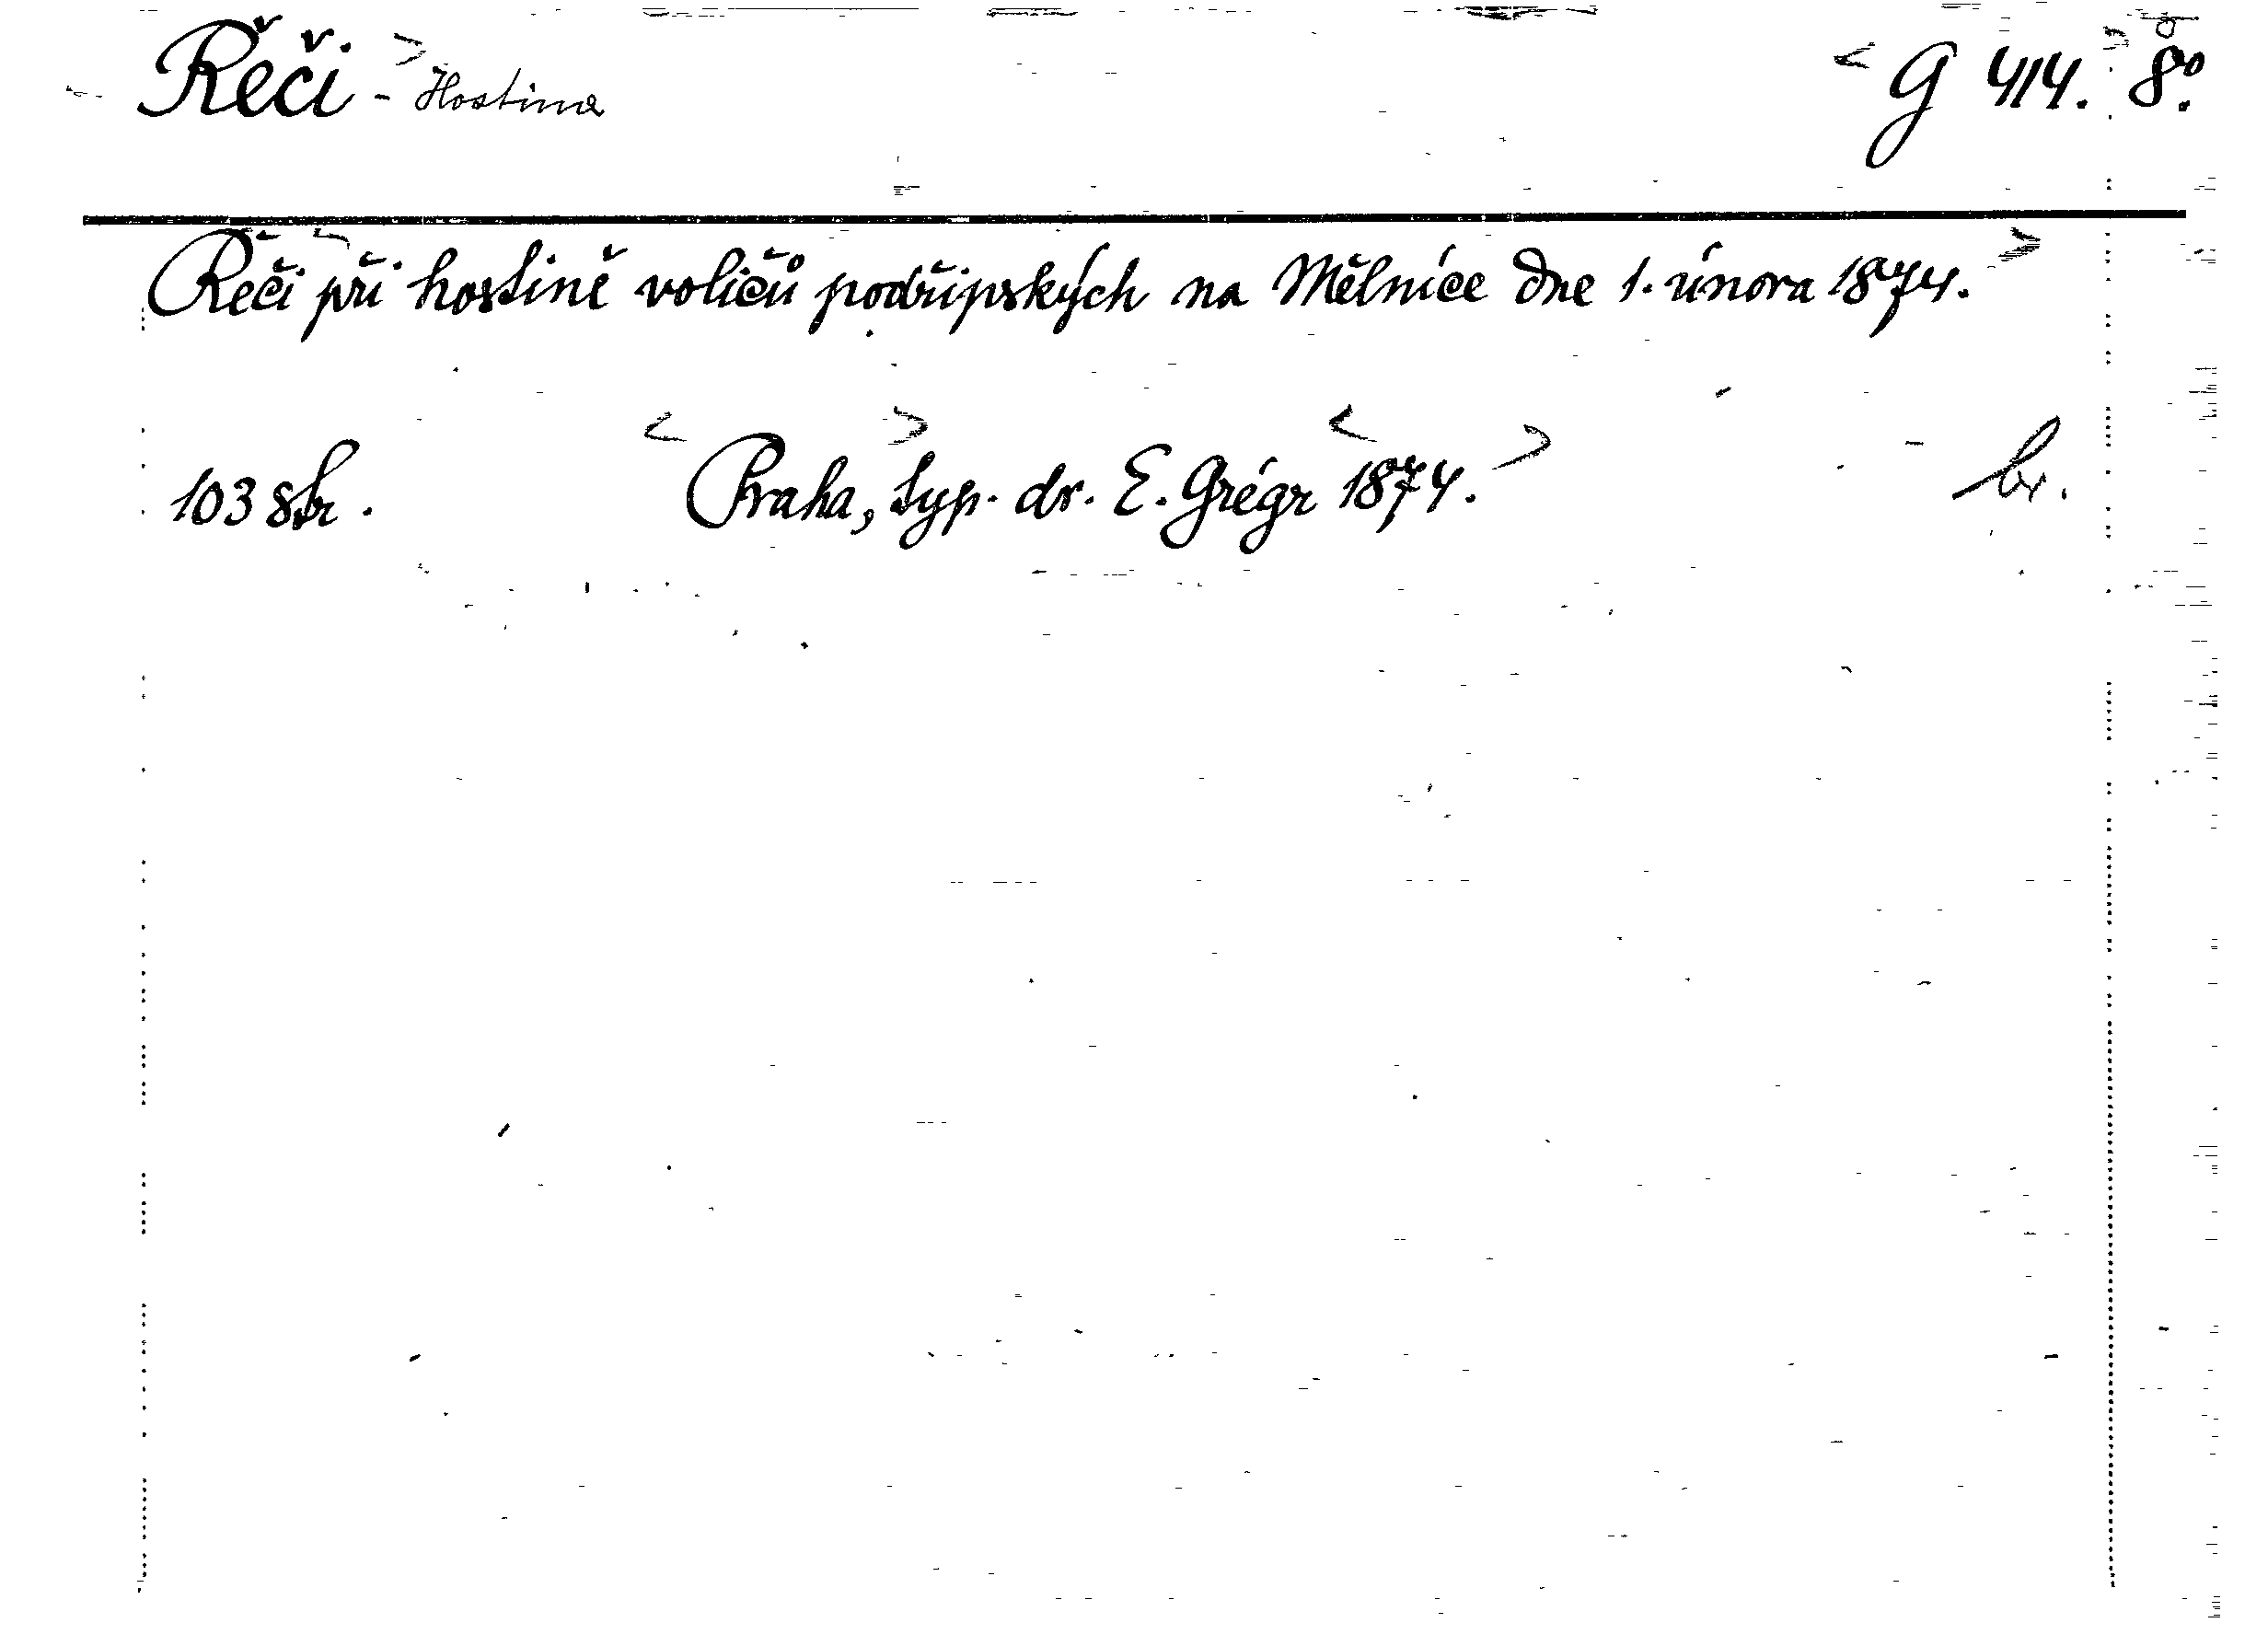 Řeči - Hostina G 414. 8º.
Řeči při hostině voličů podřipských na Mělníce dne 1. února 1874.
103 str. Praha, typ. dr. E. Grégr 1874. br.